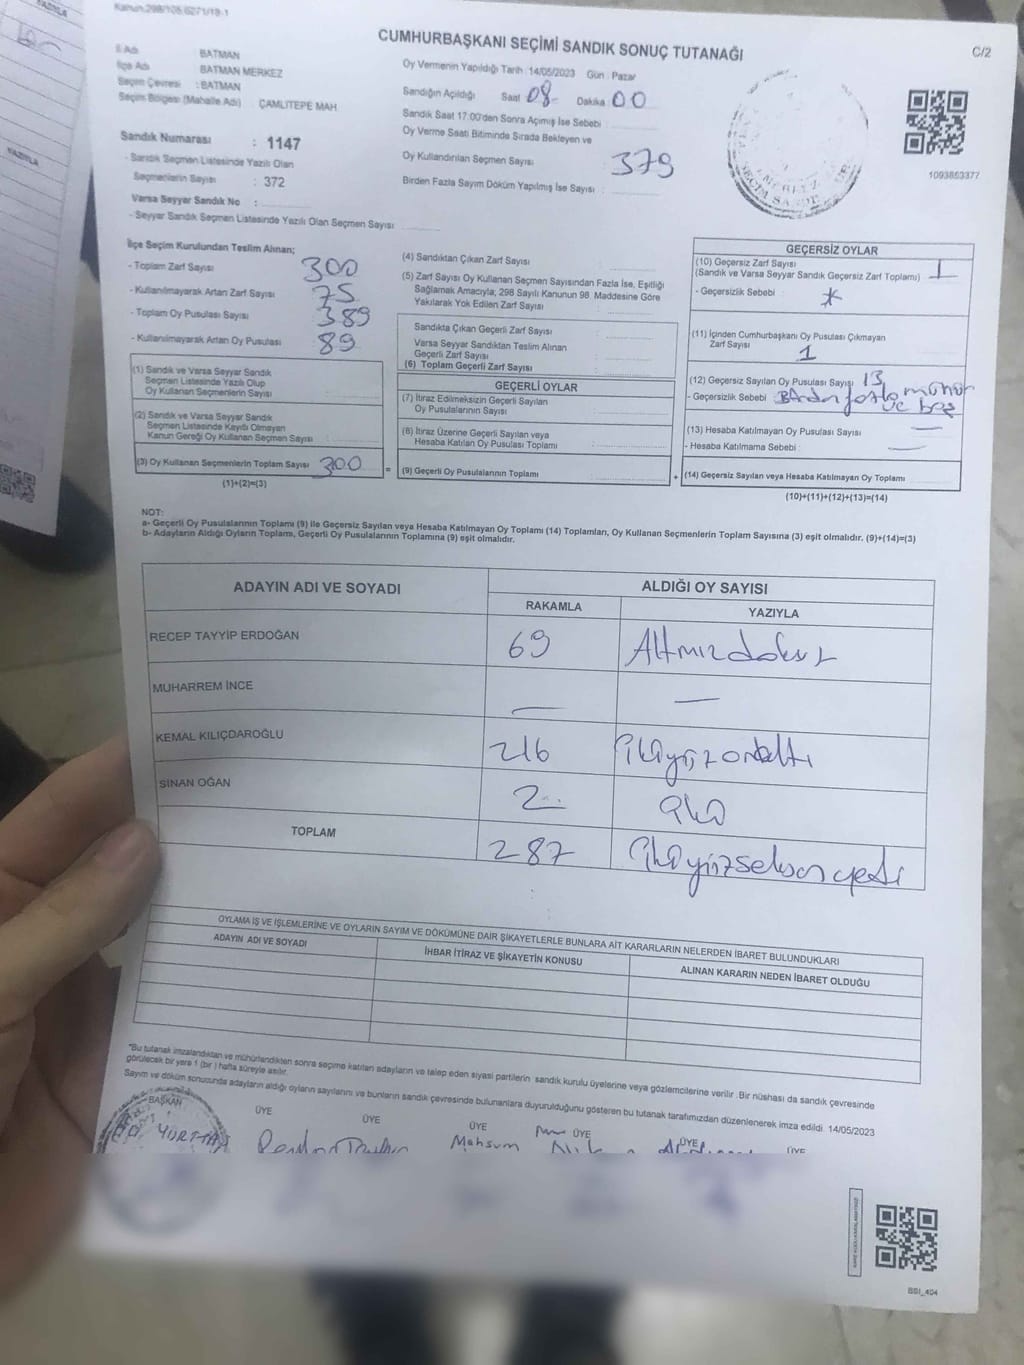 Kanun:298/105,6271/19-1
CUMHURBAŞKANI SEÇİMİ SANDIK SONUÇ TUTANAĞI
C/2
İl Adı BATMAN
İlçe Adı BATMAN MERKEZ
Seçim Çevresi : BATMAN
Seçim Bölgesi (Mahalle Adı) ÇAMLITEPE MAH
Sandık Numarası : 1147
- Sandık Seçmen Listesinde Yazılı Olan
Seçmenlerin Sayısı : 372
Varsa Seyyar Sandık No :
- Seyyar Sandık Seçmen Listesinde Yazılı Olan Seçmen Sayısı
Oy Vermenin Yapıldığı Tarih : 14/05/2023 Gün : Pazar
Sandığın Açıldığı Saat 08 Dakika 00
Sandık Saat 17.00'den Sonra Açımış İse Sebebi :
Oy Verme Saati Bitiminde Sırada Bekleyen ve
Oy Kullandırılan Seçmen Sayısı 379
Birden Fazla Sayım Döküm Yapılmış İse Sayısı :
1093853377
İlçe Seçim Kurulundan Teslim Alınan;
- Toplam Zarf Sayısı 300
- Kullanılmayarak Artan Zarf Sayısı 75
- Toplam Oy Pusulası Sayısı 389
- Kullanılmayarak Artan Oy Pusulası 89
(1) Sandık ve Varsa Seyyar Sandık
Seçmen Listesinde Yazılı Olup
Oy Kullanan Seçmenlerin Sayısı :
(2) Sandık ve Varsa Seyyar Sandık
Seçmen Listesinde Kayıtlı Olmayan
Kanun Gereği Oy Kullanan Seçmen Sayısı :
(3) Oy Kullanan Seçmenlerin Toplam Sayısı 300
(1)+(2)=(3)
=
(4) Sandıktan Çıkan Zarf Sayısı :
(5) Zarf Sayısı Oy Kullanan Seçmen Sayısından Fazla İse, Eşitliği
Sağlamak Amacıyla; 298 Sayılı Kanunun 98. Maddesine Göre
Yakılarak Yok Edilen Zarf Sayısı :
Sandıkta Çıkan Geçerli Zarf Sayısı :
Varsa Seyyar Sandıktan Teslim Alınan
Geçerli Zarf Sayısı :
(6) Toplam Geçerli Zarf Sayısı :
GEÇERLİ OYLAR
(7) İtiraz Edilmeksizin Geçerli Sayılan
Oy Pusulalarının Sayısı :
(8) İtiraz Üzerine Geçerli Sayılan veya
Hesaba Katılan Oy Pusulası Toplamı :
(9) Geçerli Oy Pusulalarının Toplamı :
+
GEÇERSİZ OYLAR
(10) Geçersiz Zarf Sayısı
(Sandık ve Varsa Seyyar Sandık Geçersiz Zarf Toplamı) 1
- Geçersizlik Sebebi :
(11) İçinden Cumhurbaşkanı Oy Pusulası Çıkmayan
Zarf Sayısı 1
(12) Geçersiz Sayılan Oy Pusulası Sayısı 13
- Geçersizlik Sebebi Birden fazla mühür
ve boş
(13) Hesaba Katılmayan Oy Pusulası Sayısı —
- Hesaba Katılmama Sebebi : —
(14) Geçersiz Sayılan veya Hesaba Katılmayan Oy Toplamı
(10)+(11)+(12)+(13)=(14)
NOT:
a- Geçerli Oy Pusulalarının Toplamı (9) ile Geçersiz Sayılan veya Hesaba Katılmayan Oy Toplamı (14) Toplamları, Oy Kullanan Seçmenlerin Toplam Sayısına (3) eşit olmalıdır. (9)+(14)=(3)
b- Adayların Aldığı Oyların Toplamı, Geçerli Oy Pusulalarının Toplamına (9) eşit olmalıdır.
ADAYIN ADI VE SOYADI ALDIĞI OY SAYISI
RAKAMLA YAZIYLA
RECEP TAYYİP ERDOĞAN 69 Altmışdokuz
MUHARREM İNCE — —
KEMAL KILIÇDAROĞLU 216 ikiyüzonaltı
SİNAN OĞAN 2 iki
TOPLAM 287 ikiyüzseksenyedi
OYLAMA İŞ VE İŞLEMLERİNE VE OYLARIN SAYIM VE DÖKÜMÜNE DAİR ŞİKAYETLERLE BUNLARA AİT KARARLARIN NELERDEN İBARET BULUNDUKLARI
ADAYIN ADI VE SOYADI İHBAR İTİRAZ VE ŞİKAYETİN KONUSU ALINAN KARARIN NEDEN İBARET OLDUĞU
*Bu tutanak imzalandıktan ve mühürlendikten sonra seçime katılan adayların ve talep eden siyasi partilerin sandık kurulu üyelerine veya gözlemcilerine verilir. Bir nüshası da sandık çevresinde
görülecek bir yere 1 (bir) hafta süreyle asılır.
Sayım ve döküm sonucunda adayların aldığı oyların sayılarını ve bunların sandık çevresinde bulunanlara duyurulduğunu gösteren bu tutanak tarafımızdan düzenlenerek imza edildi. 14/05/2023
BAŞKAN ÜYE ÜYE ÜYE ÜYE ÜYE ÜYE
YURTTAŞ Mahsum
BSI_404
YAZIYLA